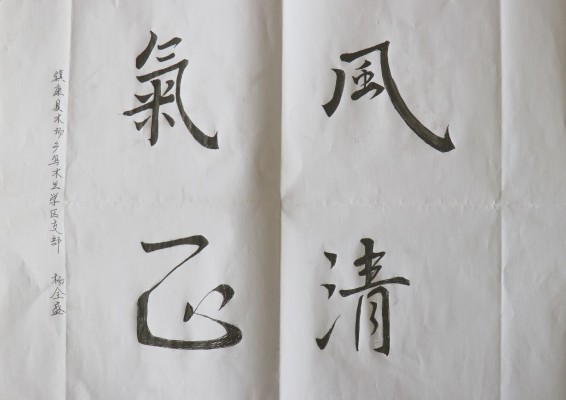 風清
氣正
镇康县木场乡乌木兰学区支部 杨